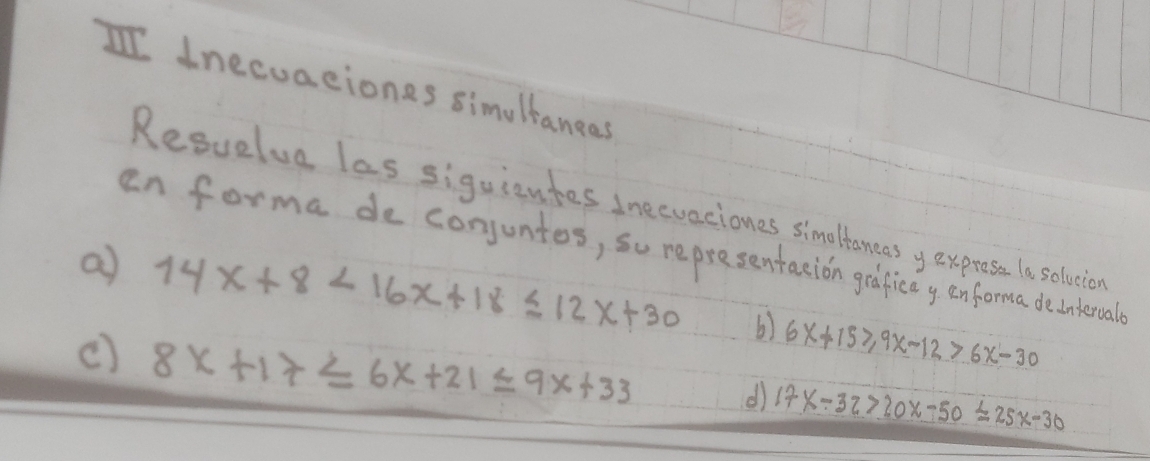 III Inecuaciones simultaneas
Resuelva las siguientes Inecuaciones simultaneas y exprese la solucion
en forma de conjuntos, su representación gráfica y en forma de Intervalo
a) 14x+8 < 16x+18 ≤ 12x+30
b) 6x+15 ≥ 9x-12 > 6x-30
c) 8x+17 ≤ 6x+21 ≤ 9x+33
d) 17x-32 > 20x-50 ≤ 25x-30